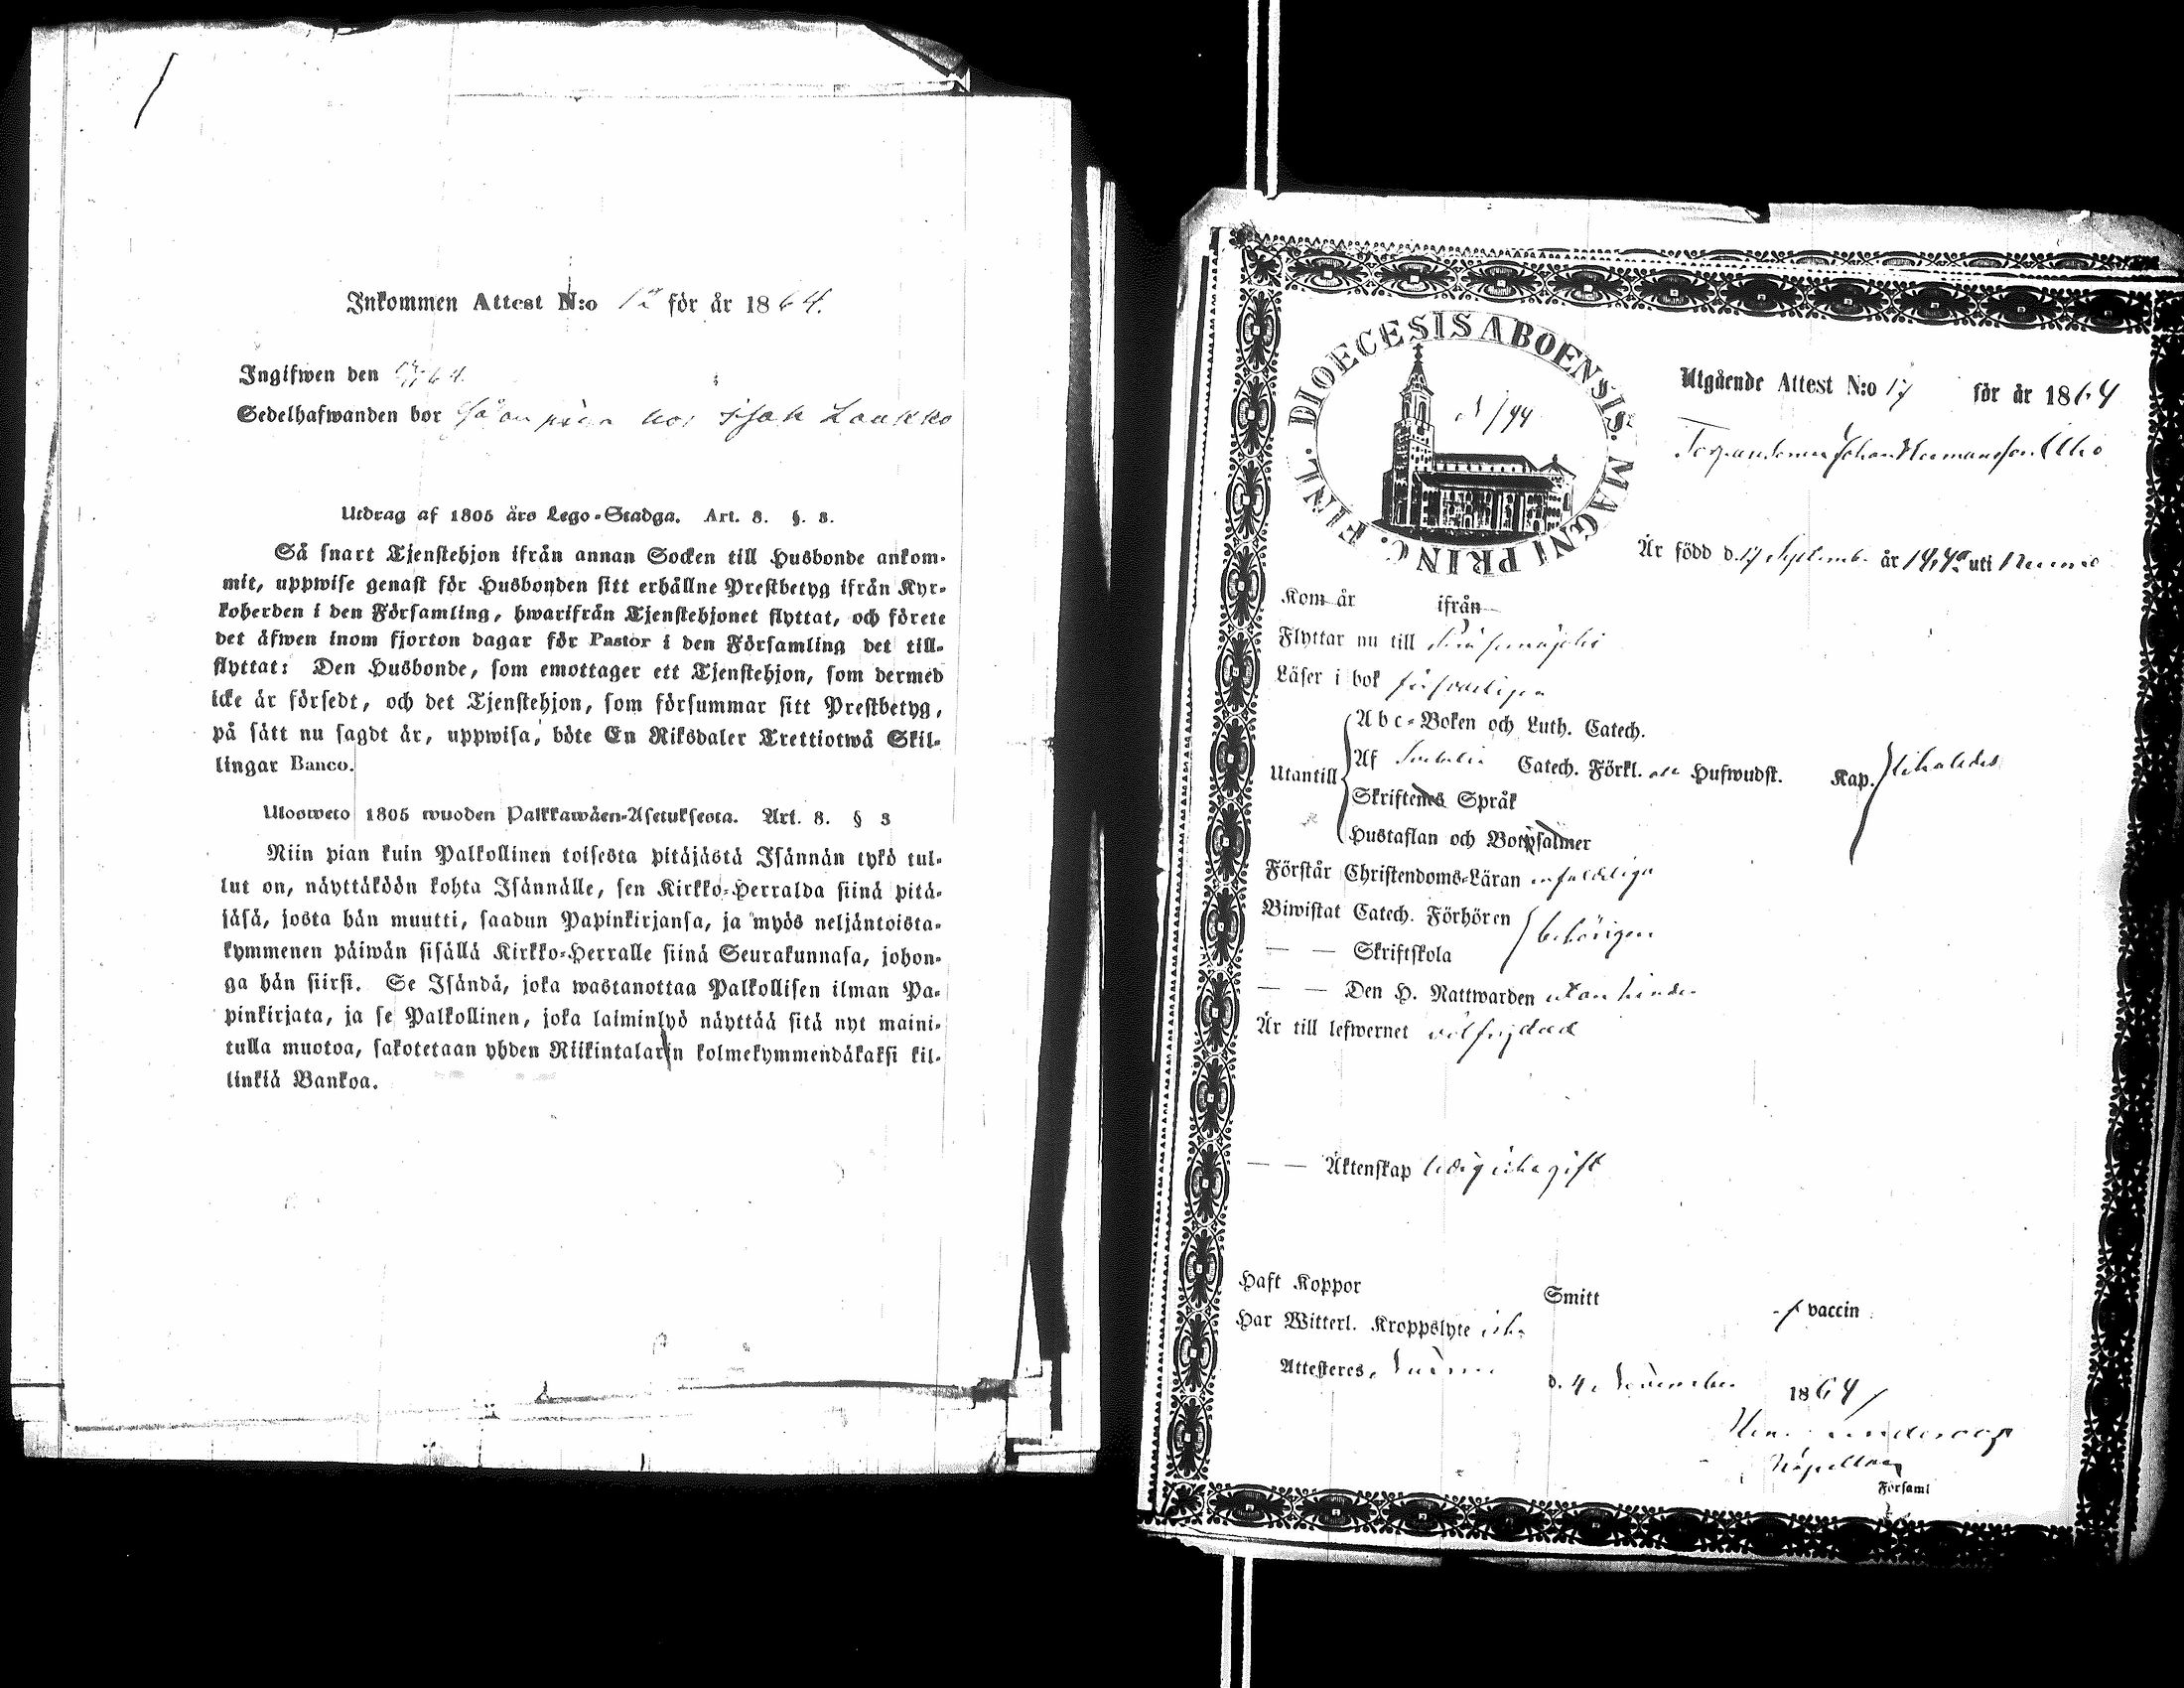 Inkommen Attest N:o 12 för år 1864.
Ingifwen den
Sedelhafwanden bor hos Isak Laukko
Utdrag af 1805 års Lego-Stadga. Art. 8. §. 3.
Så snart Tjenstehjon ifrån annan Socken till Husbonde ankom-
mit, uppwise genast för Husbonden sitt erhållne Prestbetyg ifrån Kyr-
koherden i den Församling, hwarifrån Tjenstehjonet flyttat, och förete
det äfwen inom fjorton dagar för Pastor i den Församling det till-
flyttat: Den Husbonde, som emottager ett Tjenstehjon, som dermed
icke är försedt, och det Tjenstehjon, som försummar sitt Prestbetyg,
på sätt nu sagdt är, uppwisa, böte En Riksdaler Trettiotwå Skil-
lingar Banco.
Ulosweto 1805 wuoden Palkkawäen-Asetuksesta. Art. 8. § 3
Niin pian kuin Palkollinen toisesta pitäjästä Isännän tykö tul-
lut on, näyttäköön kohta Isännälle, sen Kirkko-Herralda siinä pitä-
jäsä, josta hän muutti, saadun Papinkirjansa, ja myös neljäntoista-
kymmenen päiwän sisällä Kirkko-Herralle siinä Seurakunnasa, johon-
ga hän siirsi. Se Isändä, joka wastanottaa Palkollisen ilman Pa-
pinkirjata, ja se Palkollinen, joka laiminlyö näyttää sitä nyt maini-
tulla muotoa, sakotetaan yhden Riikintalarin kolmekymmendäkaksi kil-
linkiä Bankoa.
DIOECESIS ABOENSIS. MAGNI PRINC. FINL.
Utgående Attest N:o 17 för år 1864
Johan Hermansson Alho
Är född d. 17 Septemb. år uti
Kom år ifrån
Flyttar nu till
Läser i bok försvarligen
Abc-Boken och Luth. Catech.
Utantill Af Catech. Förkl. Hufwudst. Kap.
Skriftenes Språk
Hustaflan och Botpsalmer
Förstår Christendoms-Läran enfaldeliga
Biwistat Catech. Förhören behörigen
— — Skriftskola
— — Den H. Nattwarden utan hinder
Är till lefwernet välfrejdad
— — Äktenskap ledig icke gift
Haft Koppor Smitt vaccin
Har Witterl. Kroppslyte icke
Attesteres, d. 4 November 1864
Kapellan
Församl